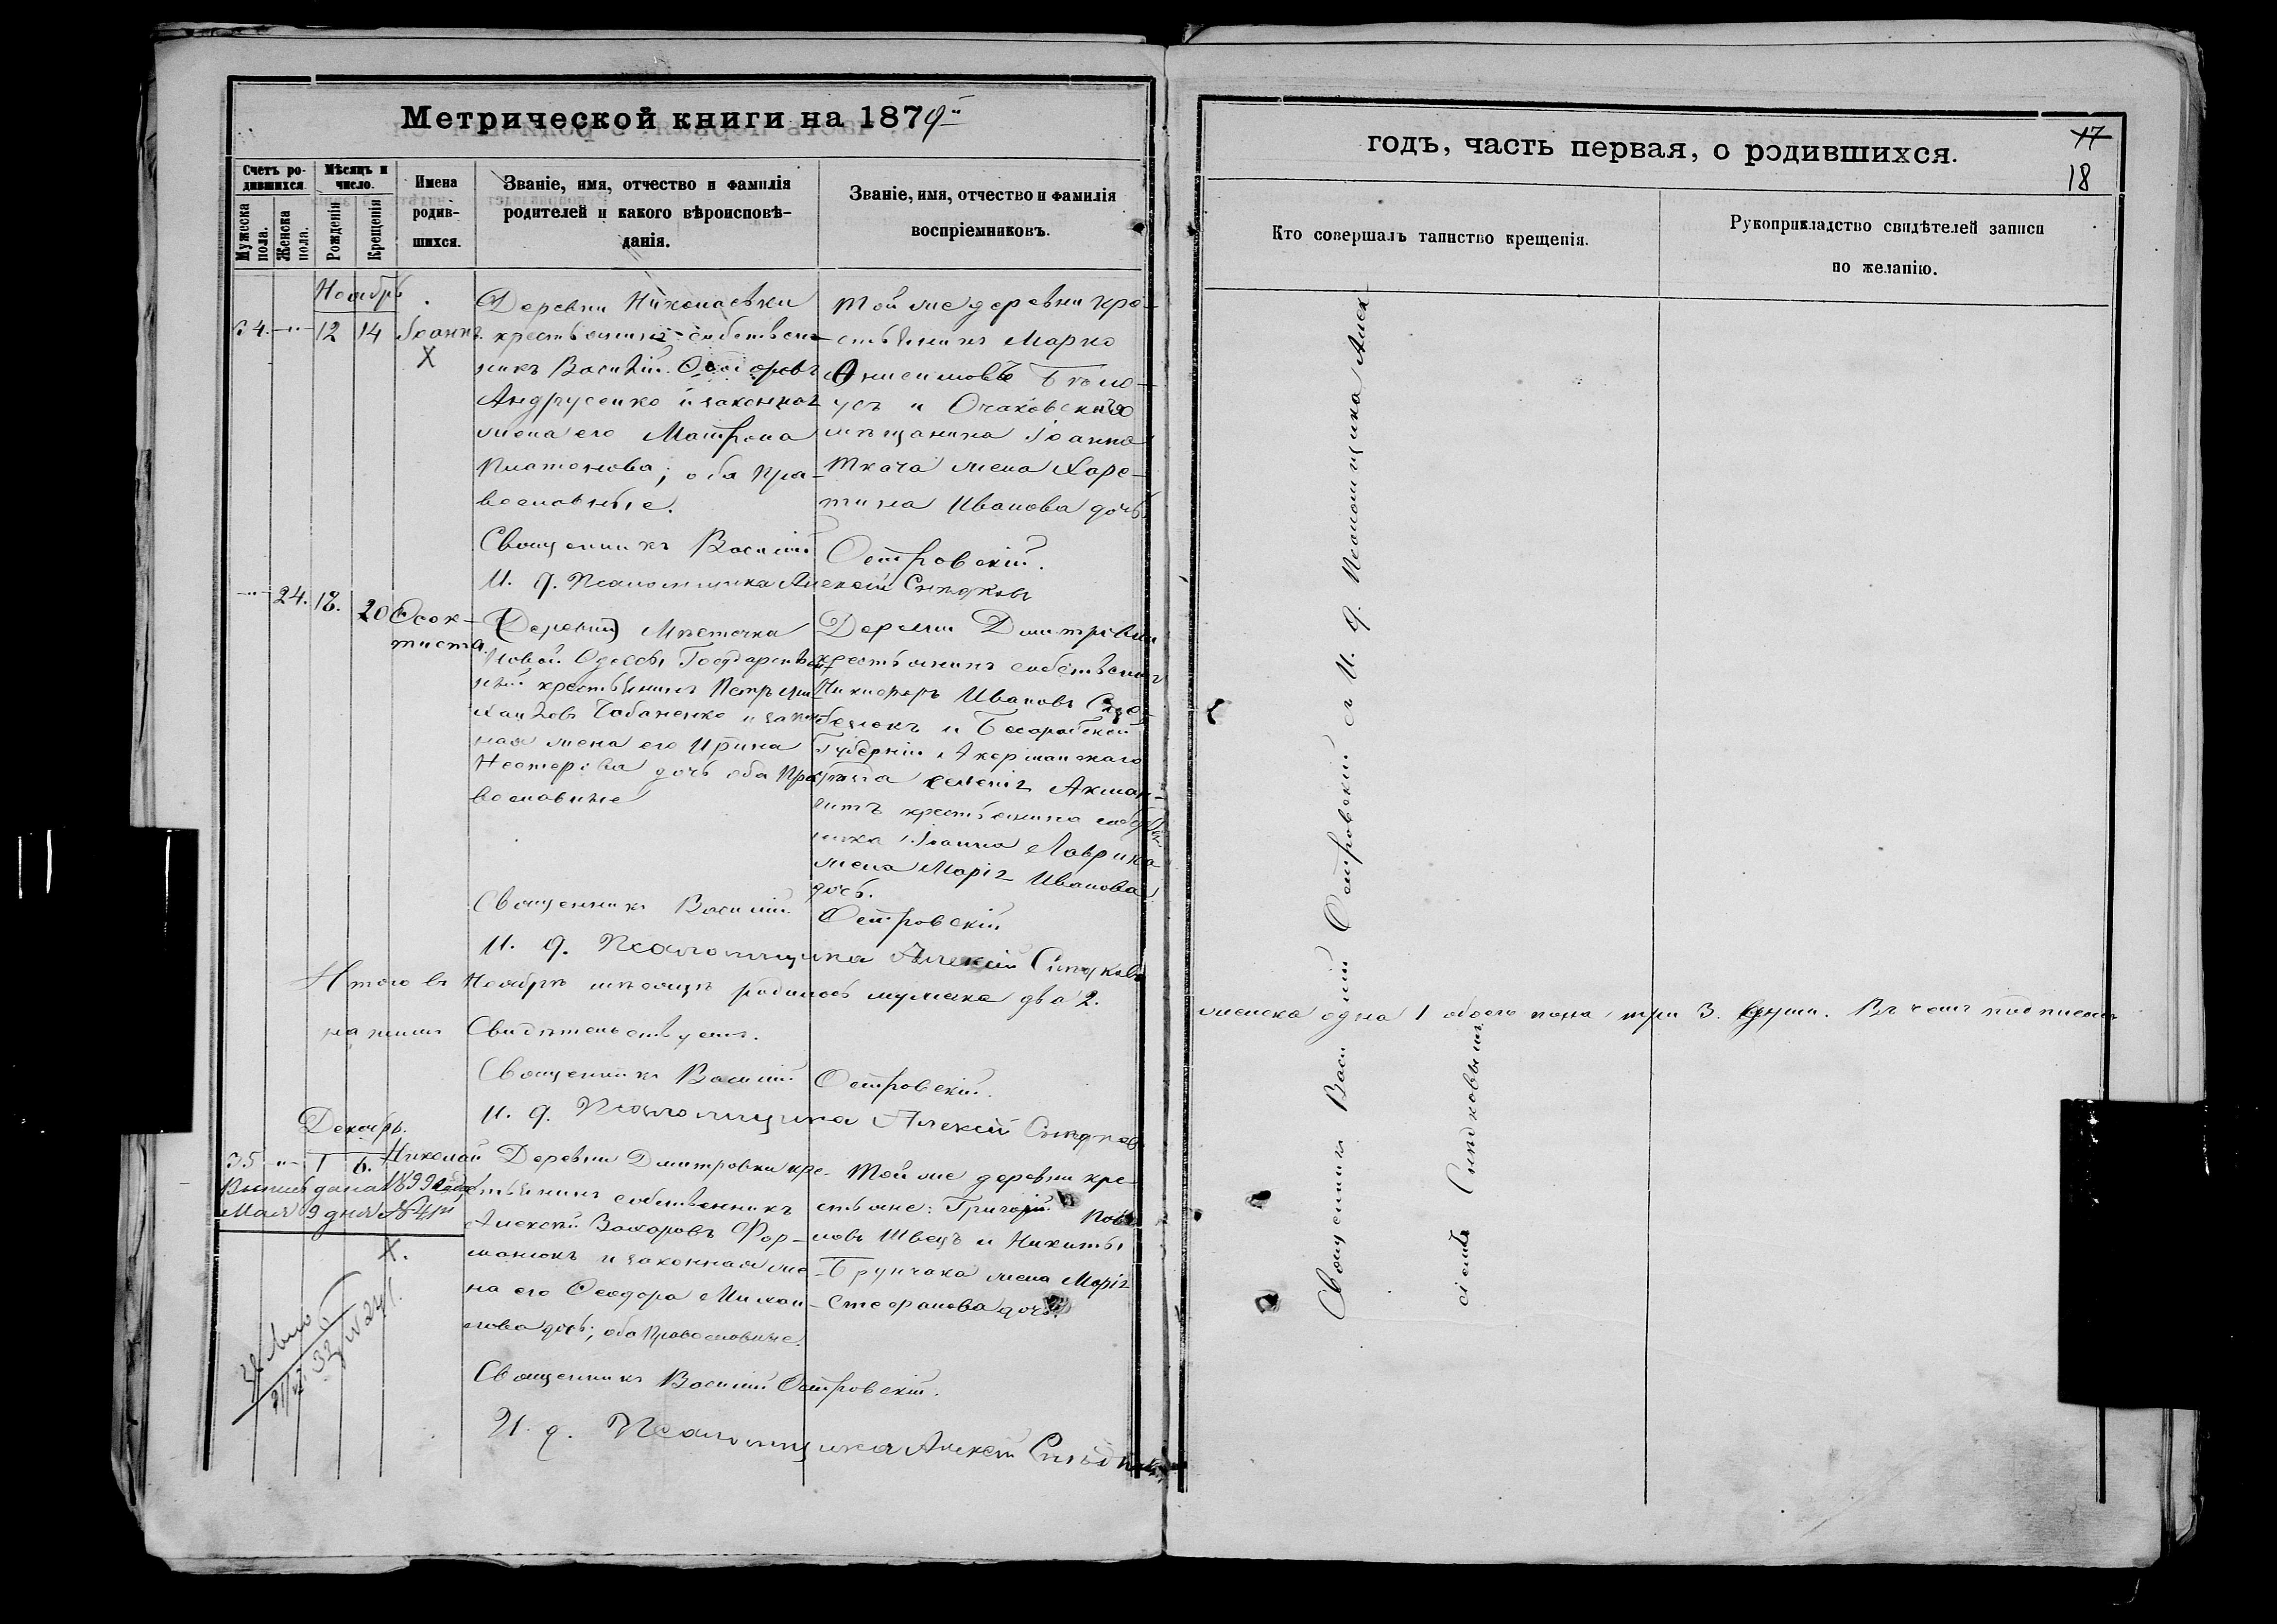 Метрической книги на 1879й
Счетъ ро-
дившихся.
Мѣсяцъ и
число.
Мужеска пола.
Женска пола.
Рожденія
Крещенія
Имена
родив-
шихся.
Званіе, имя, отчество и фамилія
родителей и какого вѣроисповѣ-
данія.
Званіе, имя, отчество и фамилія
воспріемниковъ.
Ноябрь
34. —"— 12 14 Іоаннъ.
Х
Деревни Николаевки
крестьянинъ-собствен-
никъ Василій Ѳеодоровъ
Андрусенко и законная
жена его Матрона
Платонова; оба пра-
вославные.
Той же деревни кре-
стьянинъ Марко
Анисимовъ
и Очаковскаго
мѣщанина Іоанна
Ткача жена Харе-
тина Иванова дочь.
Священникъ Василій Островскій.
И. д. Псаломщика Алексій Сѣдковъ
—"— 24. 18. 20 Ѳеок-
тиста.
(Деревни) Мѣстечка
Новой Одессы Государствен-
ный крестьянинъ Петръ Ми-
хайловъ Чабаненко и закон-
ная жена его Ирина
Нестерова дочь оба Пра-
вославные
Деревни Дмитріевки
крестьянинъ собственникъ
Никифоръ Ивановъ
и Бесарабской
Губерніи Акерманскаго
уѣзда селенія Акман-
гитъ крестьянина собствен-
ника Іоанна Лаврика
жена Марія Иванова
дочь.
Священникъ Василій Островскій
И. д. Псаломщика Алексій Сѣдковъ
Итого въ Ноябрѣ мѣсяцѣ родилось мужска два 2.
нашимъ Свидѣтельствуемъ.
Священникъ Василій Островскій.
И. д. Псаломщика Алексій Сѣдковъ
Декабрь.
35 —"— 1 6. Николай
дана 1899 года
Мая 9 дня № 41й
Х.
Деревни Дмитровки кре-
стьянинъ собственникъ
Алексѣй Захаровъ Фор-
манюкъ и законная же-
на его Ѳеодора Михай-
лова дочь; оба Православные.
Той же деревни кре-
стьяне: Григорій
Швецъ и Никиты
Брунчака жена Марія
Стефанова дочь.
Священникъ Василій Островскій.
И. д. Псаломщика Алексій Сѣдковъ
годъ, часть первая, о родившихся.
17
18
Кто совершалъ таинство крещенія.
Рукоприкладство свидѣтелей записи
по желанію.
Священникъ Василій Островскій съ И. д. Псаломщика Алек
сіемъ Сѣдковымъ
женска одна 1 обоего пола три 3. души. Въ чемъ подписомъ